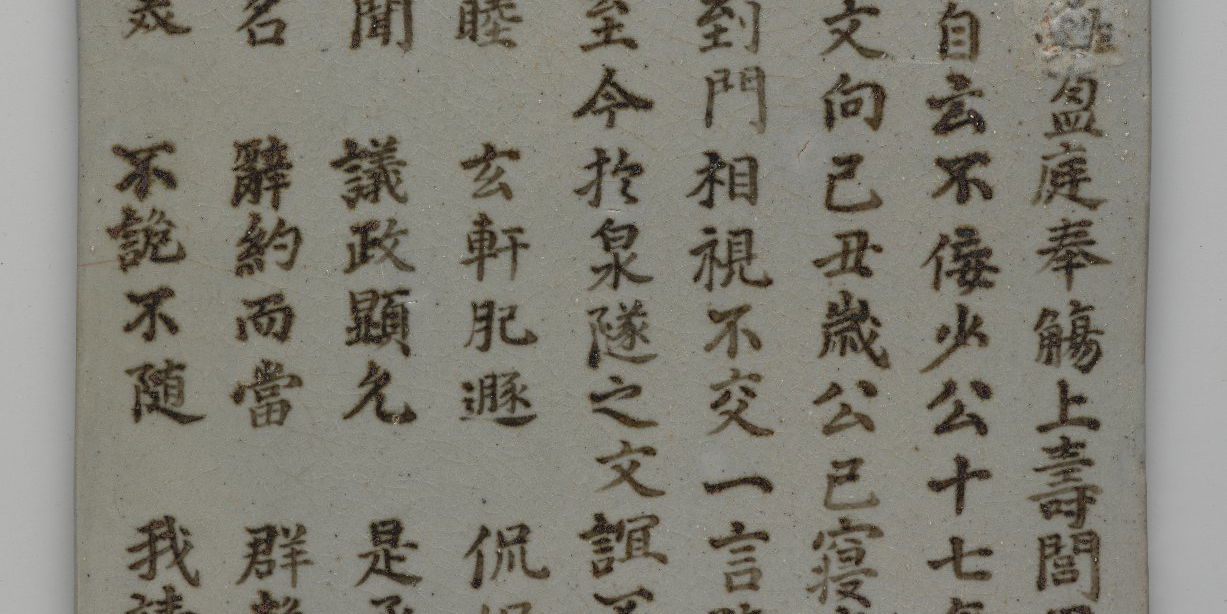 盈庭奉觴上壽閭
自云不倭少公十七
文向己丑歲公已寑
到門相視不交一言
至今於泉隧之文誼
睦 玄軒肥遯 侃
聞 議政顯允 是
名 辭約而當 群
不詭不随 我